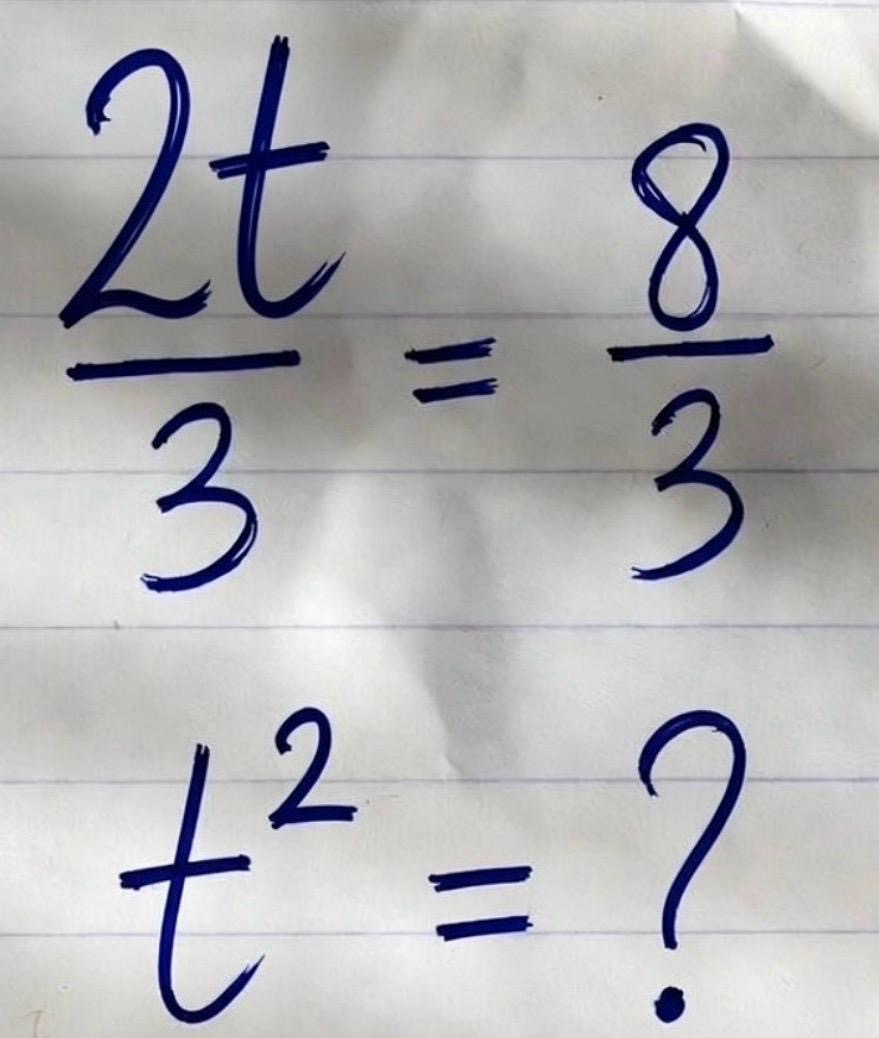 2t/3 = 8/3
t² = ?